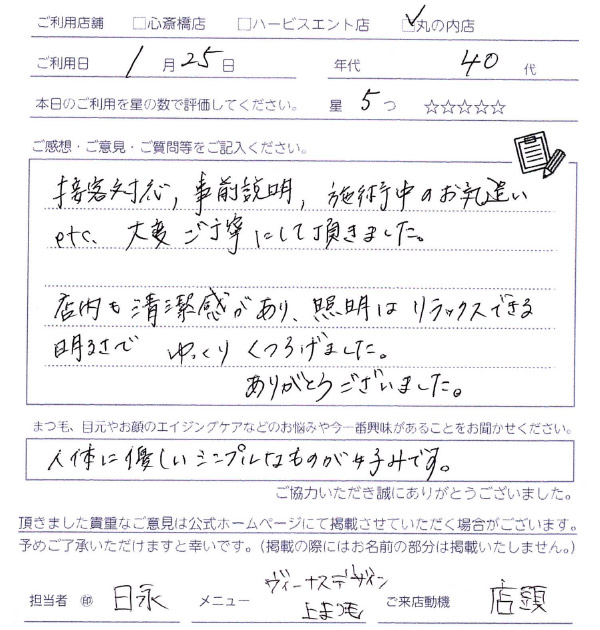 ご利用店舗 □心斎橋店 □ハービスエント店 ☑丸の内店
ご利用日 1月25日 年代 40代
本日のご利用を星の数で評価してください。 星 5つ ☆☆☆☆☆
ご感想・ご意見・ご質問等をご記入ください。
接客対応, 事前説明, 施術中のお気遣い
etc. 大変ご丁寧にして頂きました。
店内も清潔感があり、照明はリラックスできる
明るさで ゆっくりくつろげました。
ありがとうございました。
まつ毛、目元やお顔のエイジングケアなどのお悩みや今一番興味があることをお聞かせください。
人体に優しいシンプルなものが好みです。
ご協力いただき誠にありがとうございました。
頂きました貴重なご意見は公式ホームページにて掲載させていただく場合がございます。
予めご了承いただけますと幸いです。（掲載の際にはお名前の部分は掲載いたしません。）
ヴィーナスデザイン
担当者 ㊞ 日永 メニュー 上まつ毛 ご来店動機 店頭